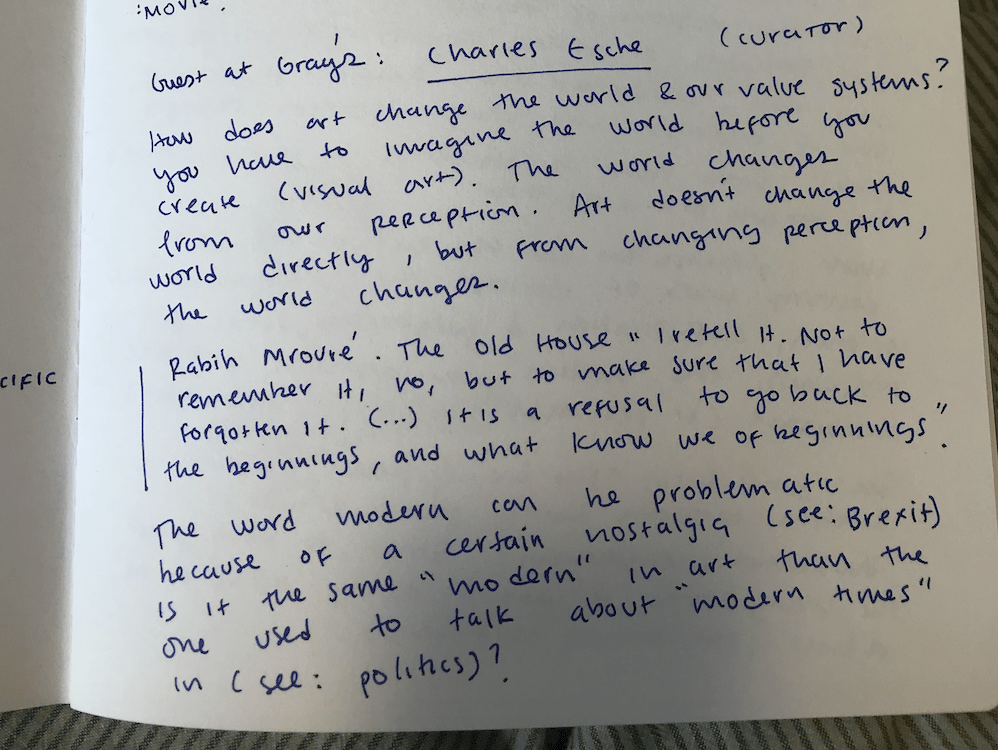 :MOVIE.
Guest at Gray's: Charles Esche (curator)
How does art change the world & our value systems?
you have to imagine the world before you
create (visual art). The world changes
from our perception. Art doesn't change the
world directly, but from changing perception,
the world changes.
CIFIC
Rabih Mroué. The Old House "I retell it. Not to
remember it, no, but to make sure that I have
forgotten it. (...) it is a refusal to go back to
the beginnings, and what know we of beginnings".
The word modern can be problematic
because of a certain nostalgia (see: Brexit)
is it the same "modern" in art than the
one used to talk about "modern times"
in (see: politics)?